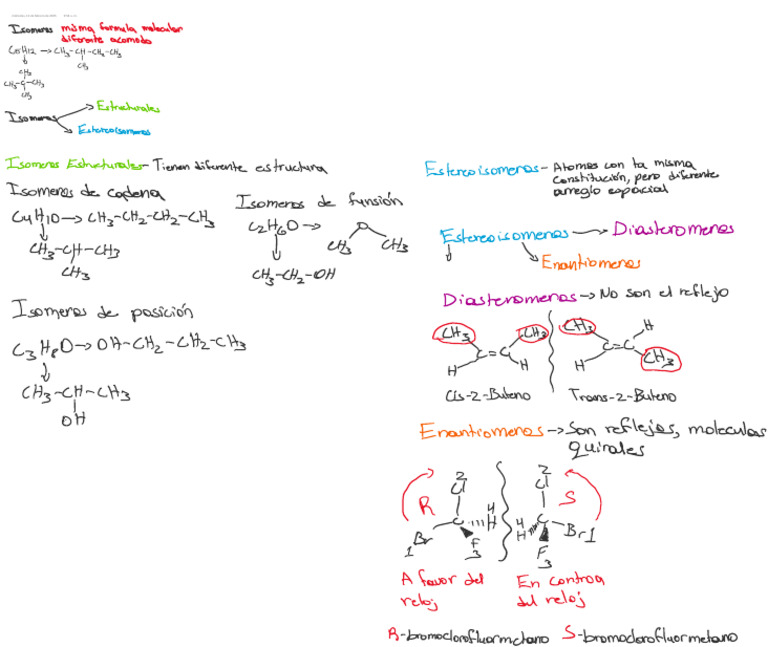 Isomeros misma formula molecular
diferente acomodo
C5H12 → CH3-CH-CH2-CH3
CH3
CH3
CH3-C-CH3
CH3
Isomeros
Estructurales
Estereoisomeros
Isomeros Estructurales - Tienen diferente estructura
Isomeros de cadena
C4H10 → CH3-CH2-CH2-CH3
CH3-CH-CH3
CH3
Isomeros de funsión
C2H6O →
O
CH3 CH3
CH3-CH2-OH
Isomeros de posición
C3H8O → OH-CH2-CH2-CH3
CH3-CH-CH3
OH
Estereoisomeros - Atomos con la misma
constitución, pero diferente
arreglo espacial
Estereoisomeros → Diasteromeros
Enantiomeros
Diasteromeros → No son el reflejo
CH3 CH3
C=C
H H
Cis-2-Buteno
CH3 H
C=C
H CH3
Trans-2-Buteno
Enantiomeros → Son reflejos, moleculas
quirales
2
Cl
R
4
C H
Br
1
F
3
A favor del
reloj
R-bromoclorofluormetano
2
Cl
S
4
H C
Br 1
F
3
En controa
del reloj
S-bromoclorofluormetano